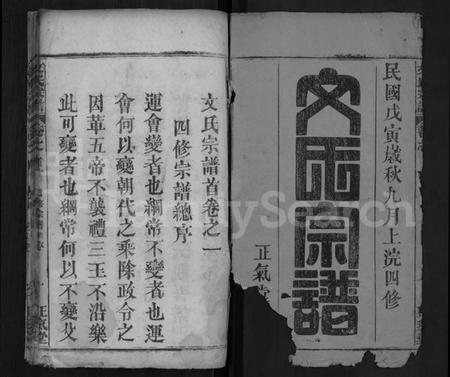 民國戊寅歲秋九月上浣四修
文氏宗譜
正氣
文氏宗譜首卷之一
四修宗譜總序
運會變者也綱常不變者也運
會何以變朝代之乘除政令之
因革五帝不襲禮三王不沿樂
此可變者也綱常何以不變父
正氣堂
MySearch